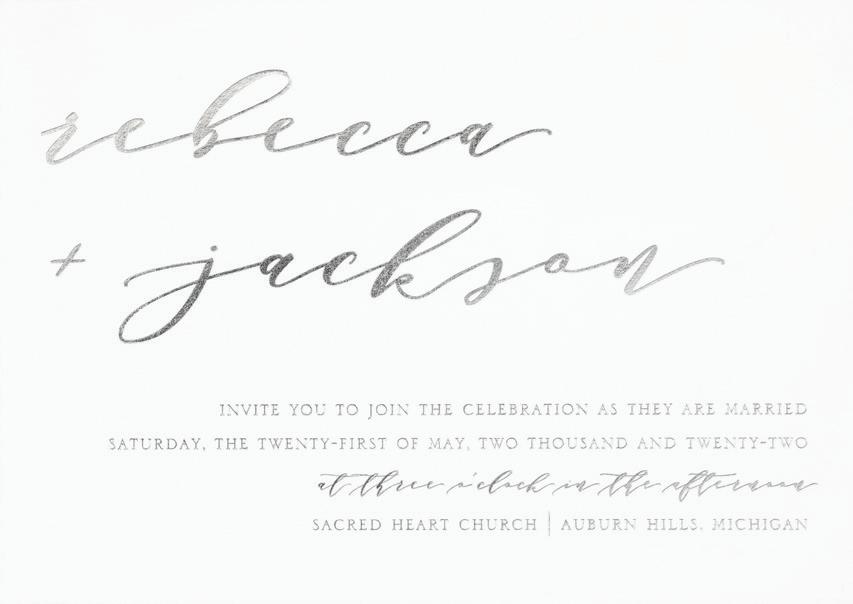 rebecca
+ jackson
INVITE YOU TO JOIN THE CELEBRATION AS THEY ARE MARRIED
SATURDAY, THE TWENTY-FIRST OF MAY, TWO THOUSAND AND TWENTY-TWO
at three o'clock in the afternoon
SACRED HEART CHURCH | AUBURN HILLS, MICHIGAN